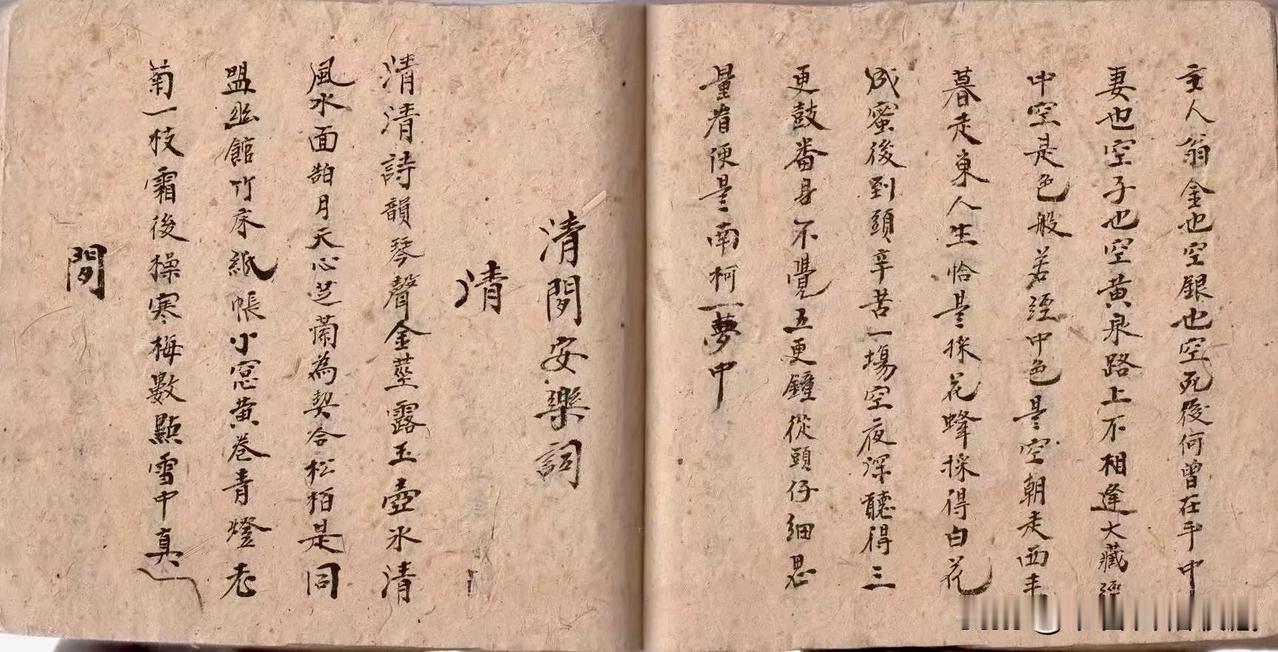 主人翁金也空銀也空死後何曾在手中
妻也空子也空黄泉路上不相逢大藏經
中空是色般若經中色是空朝走西
暮走東人生恰是採花蜂採得白花
成蜜後到頭辛苦一場空夜深聽得三
更鼓番身不覺五更鐘從頭仔細思
量看便是南柯一夢中
清閒安樂詞
清
清清詩韻琴聲金莖露玉壺氷清
風水面韶月天心芝蘭為契合松柏是同
盟幽館竹床紙帳小窓黄卷青燈老
菊一枝霜後操寒梅數點雪中真
閒